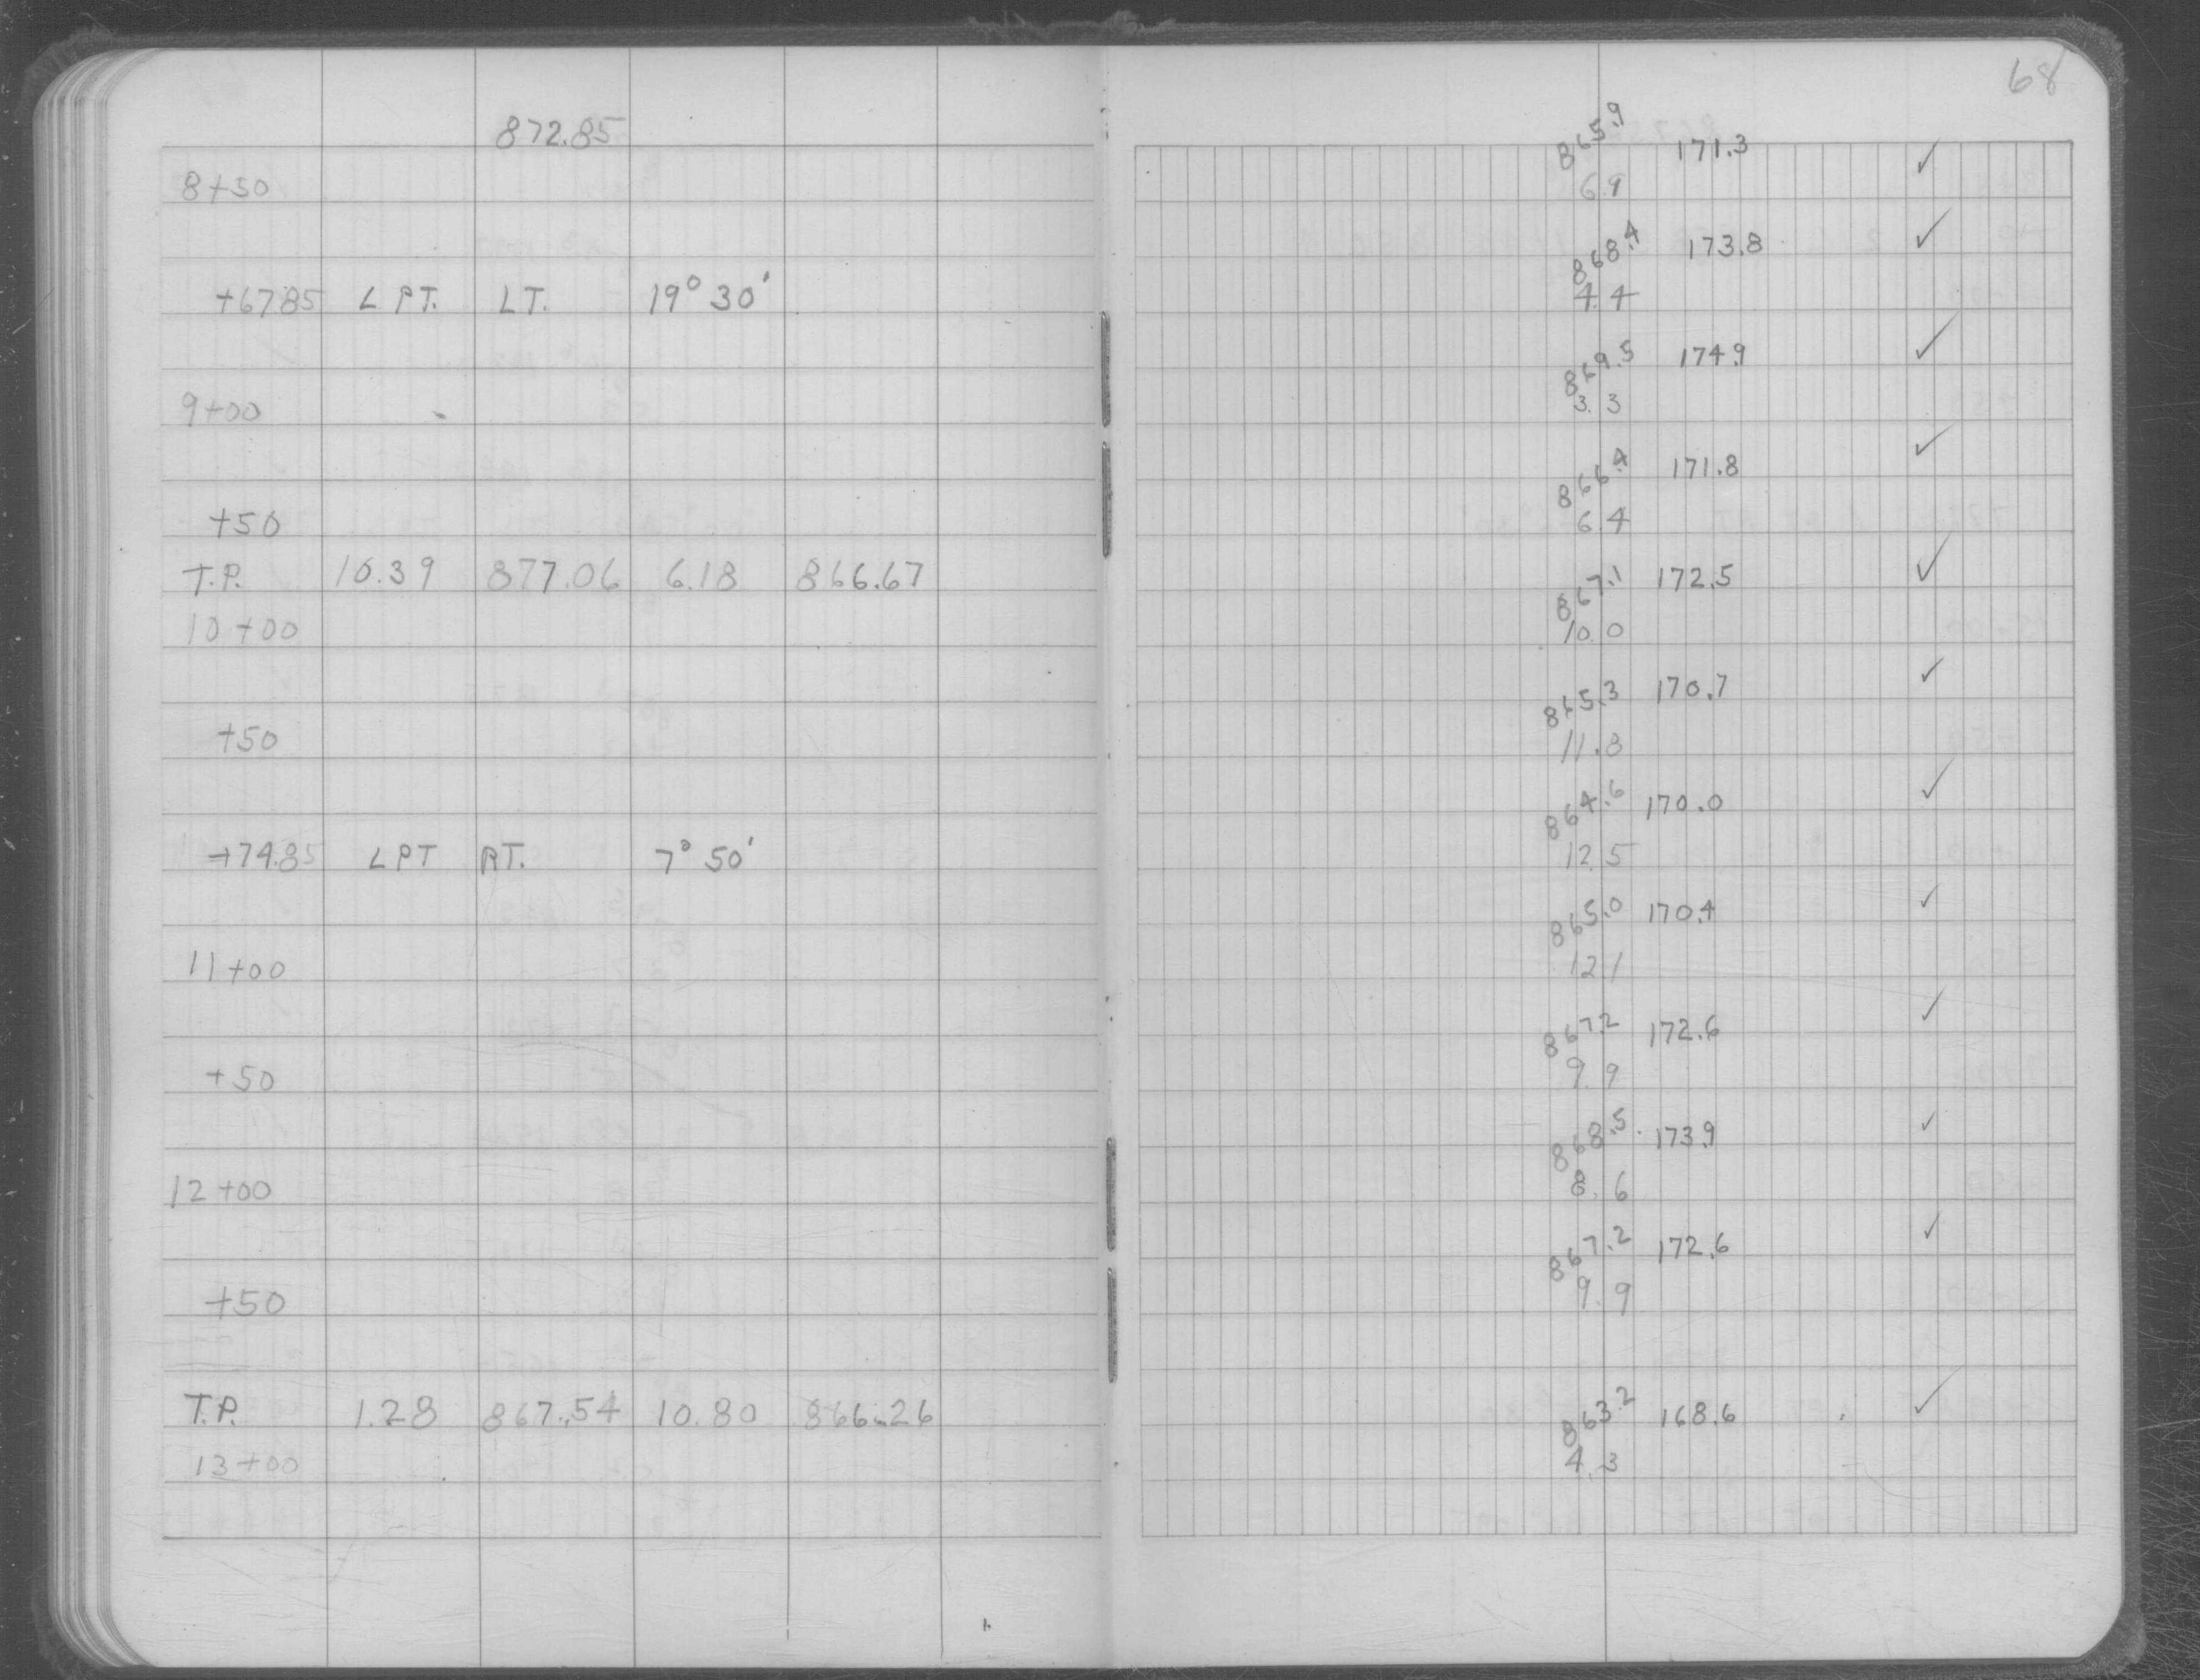 68
872.85
865.9 171.3 ✓
8+50 6.9
868.4 173.8 ✓
+67.85 ∠ PT. LT. 19° 30' 4.4
869.5 174.9 ✓
9+00 3.3
866.4 171.8 ✓
+50 6.4
T.P. 10.39 877.06 6.18 866.67 867.1 172.5 ✓
10+00 10.0
865.3 170.7 ✓
+50 11.8
864.6 170.0 ✓
+74.85 ∠ PT RT. 7° 50' 12.5
865.0 170.4 ✓
11+00 12.1
867.2 172.6 ✓
+50 9.9
868.5 173.9 ✓
12+00 8.6
867.2 172.6 ✓
+50 9.9
T.P. 1.28 867.54 10.80 866.26 863.2 168.6 ✓
13+00 4.3